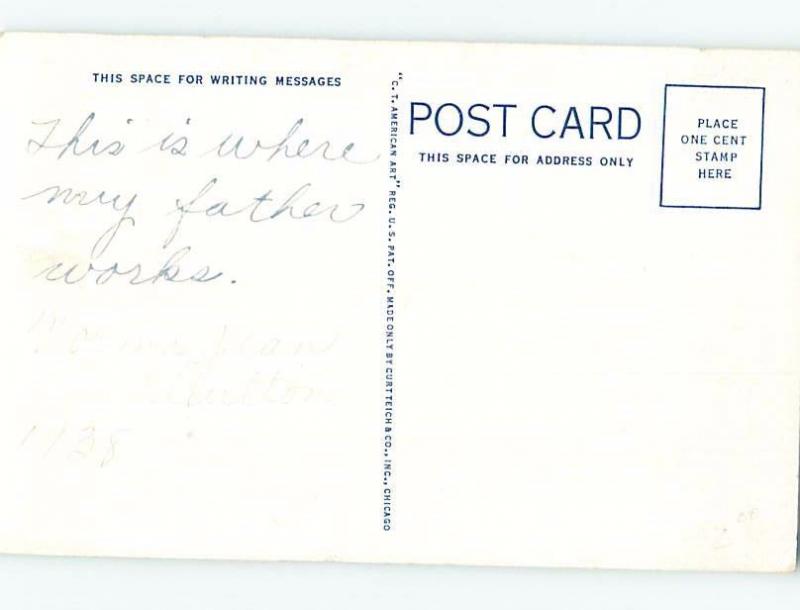 THIS SPACE FOR WRITING MESSAGES
This is where
my father
works.
Norma Jean
1938
"C. T. AMERICAN ART" REG. U. S. PAT. OFF. MADE ONLY BY CURT TEICH & CO., INC., CHICAGO
POST CARD
THIS SPACE FOR ADDRESS ONLY
PLACE
ONE CENT
STAMP
HERE